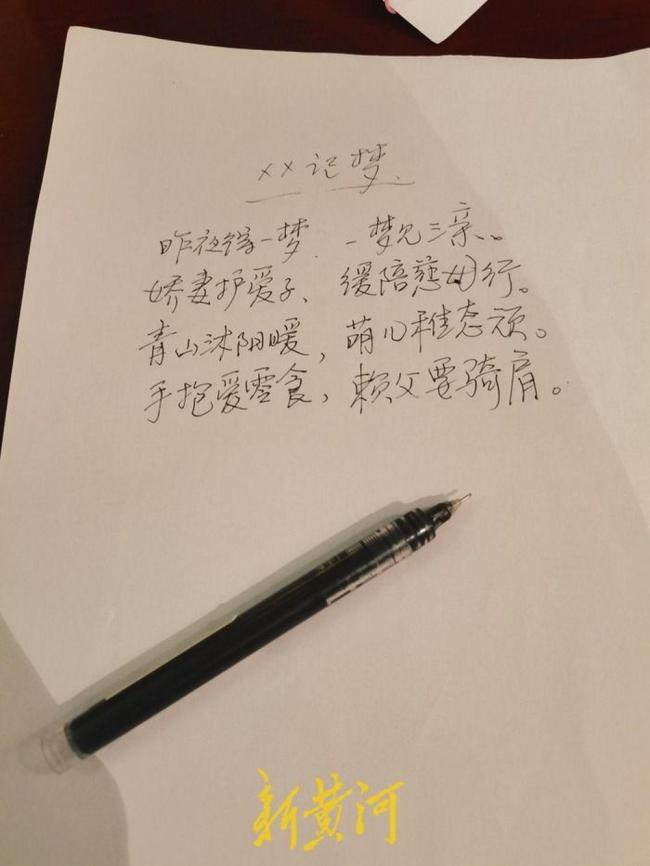 ××记梦
昨夜缘一梦 一梦见三亲。
娇妻护爱子、缓陪慈母行。
青山沐阳暖，萌儿稚态顽。
手抱爱零食，赖父要骑肩。
新黄河